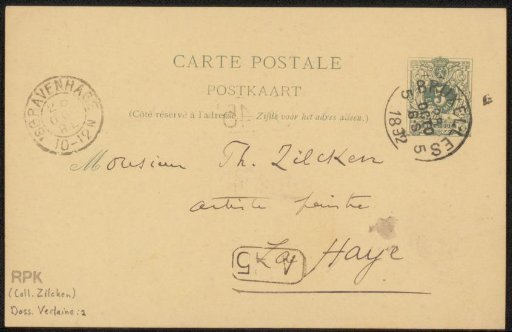 CARTE POSTALE
POSTKAART
(Côté réservé à l'adresse. Zijde voor het adres alleen.)
'S GRAVENHAGE
10-12N
BRUXELLES
5
1892
Monsieur Th. Zilcken
artiste peintre
La Haye
RPK
(Coll. Zilcken)
Doss. Verlaine: 2